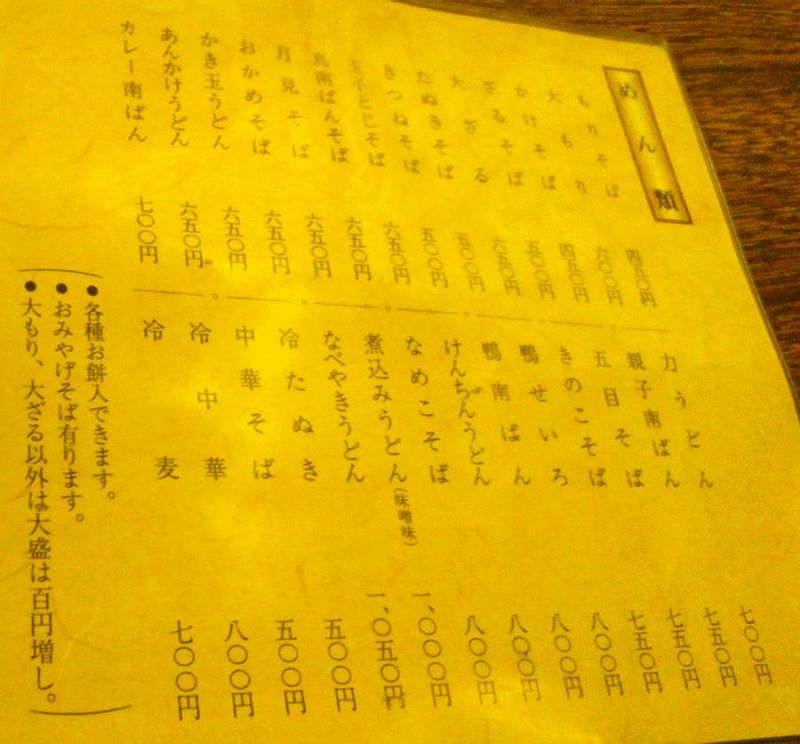 めん類
もりそば 四五〇円
大もり 六〇〇円
かけそば 四五〇円
ざるそば 五〇〇円
大ざる 六五〇円
たぬきそば 五〇〇円
きつねそば 五〇〇円
玉子とじそば 六五〇円
鳥南ばんそば 六五〇円
月見そば 六五〇円
おかめそば 六五〇円
かき玉うどん 六五〇円
あんかけうどん 六五〇円
カレー南ばん 七〇〇円
力うどん 七〇〇円
親子南ばん 七五〇円
五目そば 七五〇円
きのこそば 七五〇円
鴨せいろ 八〇〇円
鴨南ばん 八〇〇円
けんちんうどん 八〇〇円
なめこそば 八〇〇円
煮込みうどん(味噌味) 一、〇〇〇円
なべやきうどん 一、〇五〇円
冷たぬき 五〇〇円
中華そば 五〇〇円
冷中華 八〇〇円
冷麦 七〇〇円
●各種お餅入できます。
●おみやげそば有ります。
●大もり、大ざる以外は大盛は百円増し。